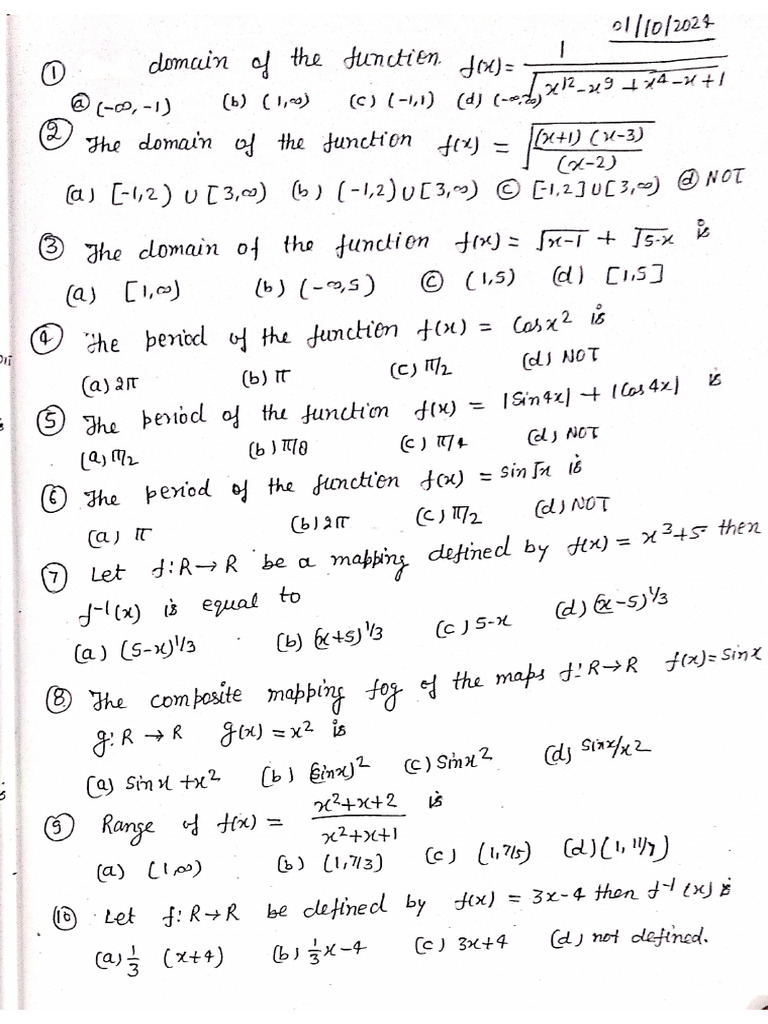 01/10/2024
① domain of the function. f(x) = 1/√(x¹²-x⁹+x⁴-x+1)
ⓐ (-∞,-1) (b) (1,∞) (c) (-1,1) (d) (-∞,∞)
② The domain of the function f(x) = √((x+1)(x-3)/(x-2))
(a) [-1,2) ∪ [3,∞) (b) (-1,2) ∪ [3,∞) ⓒ [-1,2] ∪ [3,∞) ⓓ NOT
③ The domain of the function f(x) = √x-1 + √5-x is
(a) [1,∞) (b) (-∞,5) ⓒ (1,5) (d) [1,5]
④ The period of the function f(x) = Cosx² is
(a) 2π (b) π (c) π/2 (d) NOT
⑤ The period of the function f(x) = |Sin4x| + |Cos4x| is
(a) π/2 (b) π/8 (c) π/4 (d) NOT
⑥ The period of the function f(x) = sin√x is
(a) π (b) 2π (c) π/2 (d) NOT
⑦ Let f:R→R be a mapping defined by f(x) = x³+5 then
f⁻¹(x) is equal to
(a) (5-x)^1/3 (b) (x+5)^1/3 (c) 5-x (d) (x-5)^1/3
⑧ The composite mapping fog of the maps f:R→R f(x)=sinx
g:R→R g(x)=x² is
(a) sinx+x² (b) (sinx)² (c) Sinx² (d) sinx/x²
⑨ Range of f(x) = (x²+x+2)/(x²+x+1) is
(a) (1,∞) (b) (1,7/3) (c) (1,7/5) (d) (1,11/7)
⑩ Let f:R→R be defined by f(x) = 3x-4 then f⁻¹(x) is
(a) 1/3 (x+4) (b) 1/3x-4 (c) 3x+4 (d) not defined.